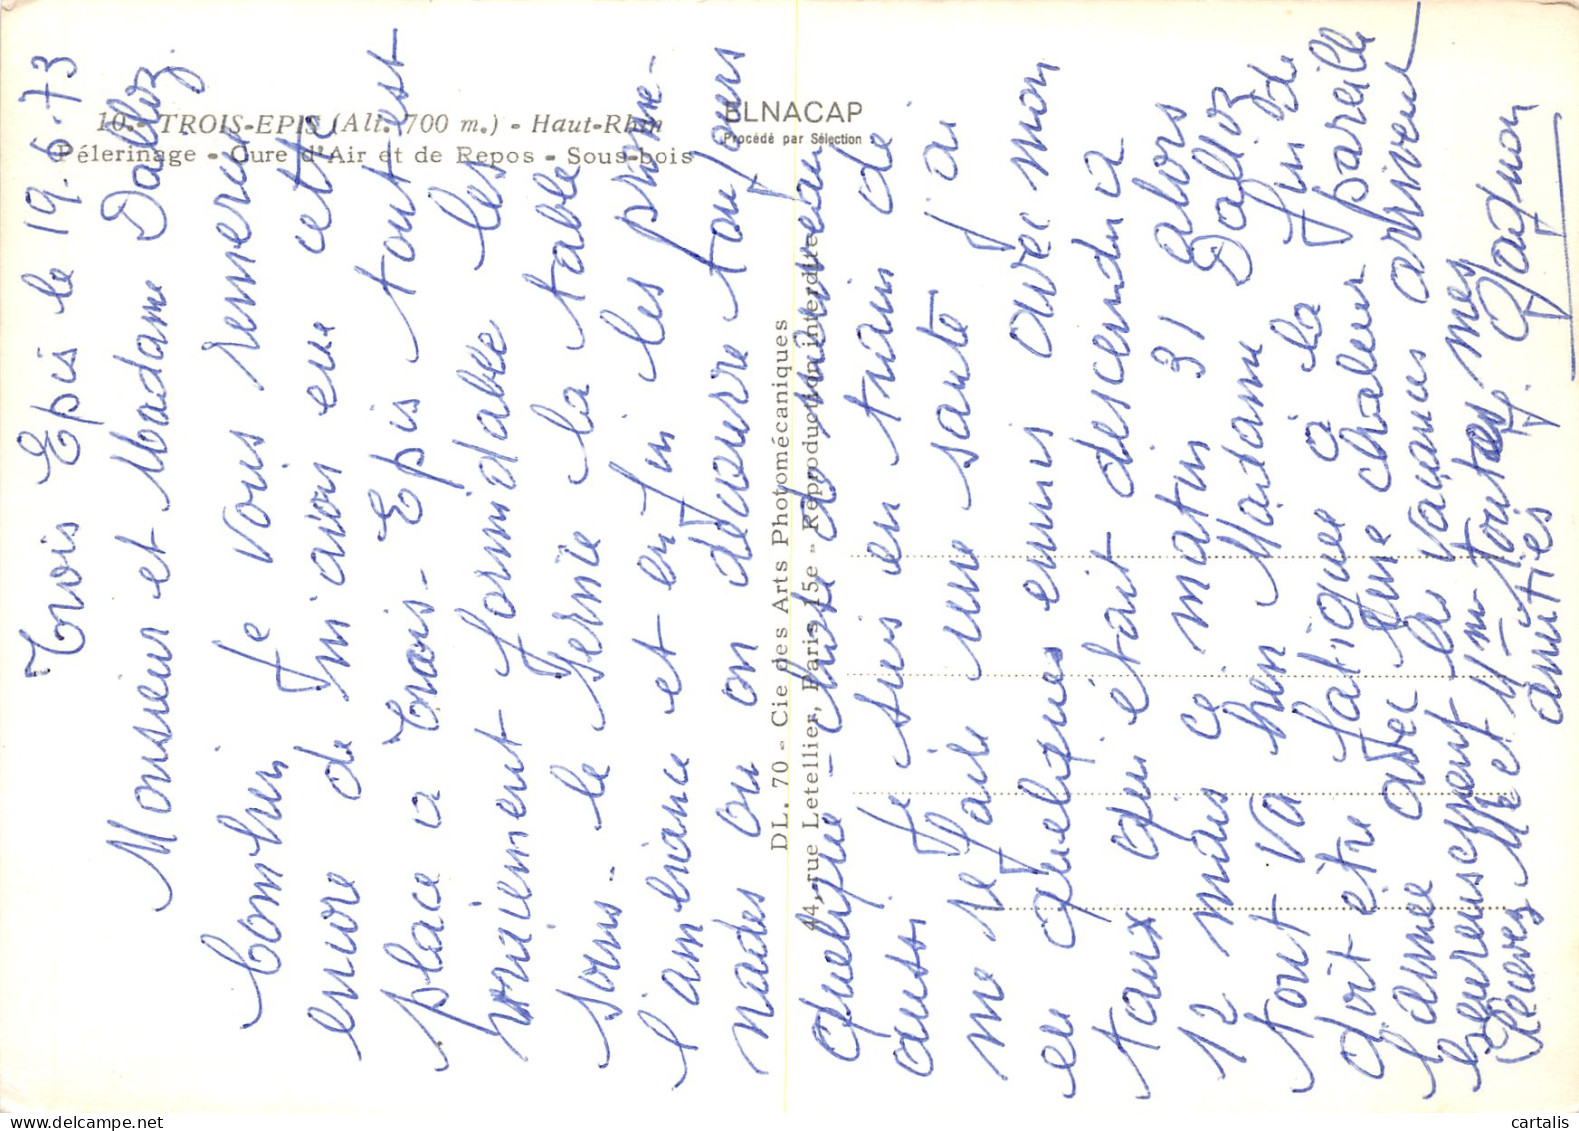 10. - TROIS-EPIS (Alt. 700 m.) - Haut-Rhin
Pélerinage - Cure d'Air et de Repos - Sous-bois
ELNACAP
Procédé par Sélection
DL. 70 - Cie des Arts Photomécaniques
44, rue Letellier, Paris 15e - Reproduction interdite
Trois Epis le 19.6.73
Monsieur et Madame Dalloz
Combien je vous remercie
encore de m'avoir eu cette
place à Trois-Epis tout est
vraiment formidable les
soins - le service la table
l'ambiance et enfin les prome-
nades ou on découvre toujours
quelque chose de nouveau
aussi je suis en train de
me refaire une santé j'ai
eu quelques ennuis avec mon
taux qui était descendu à
12 mais ce matin 31 alors
tout va bien Madame Dalloz
doit être fatiguée à la fin de
l'année avec une chaleur pareille
heureusement les vacances arrivent
Recevez Mr et Mme toutes mes
amitiés
J. Gaudnon
cartalis